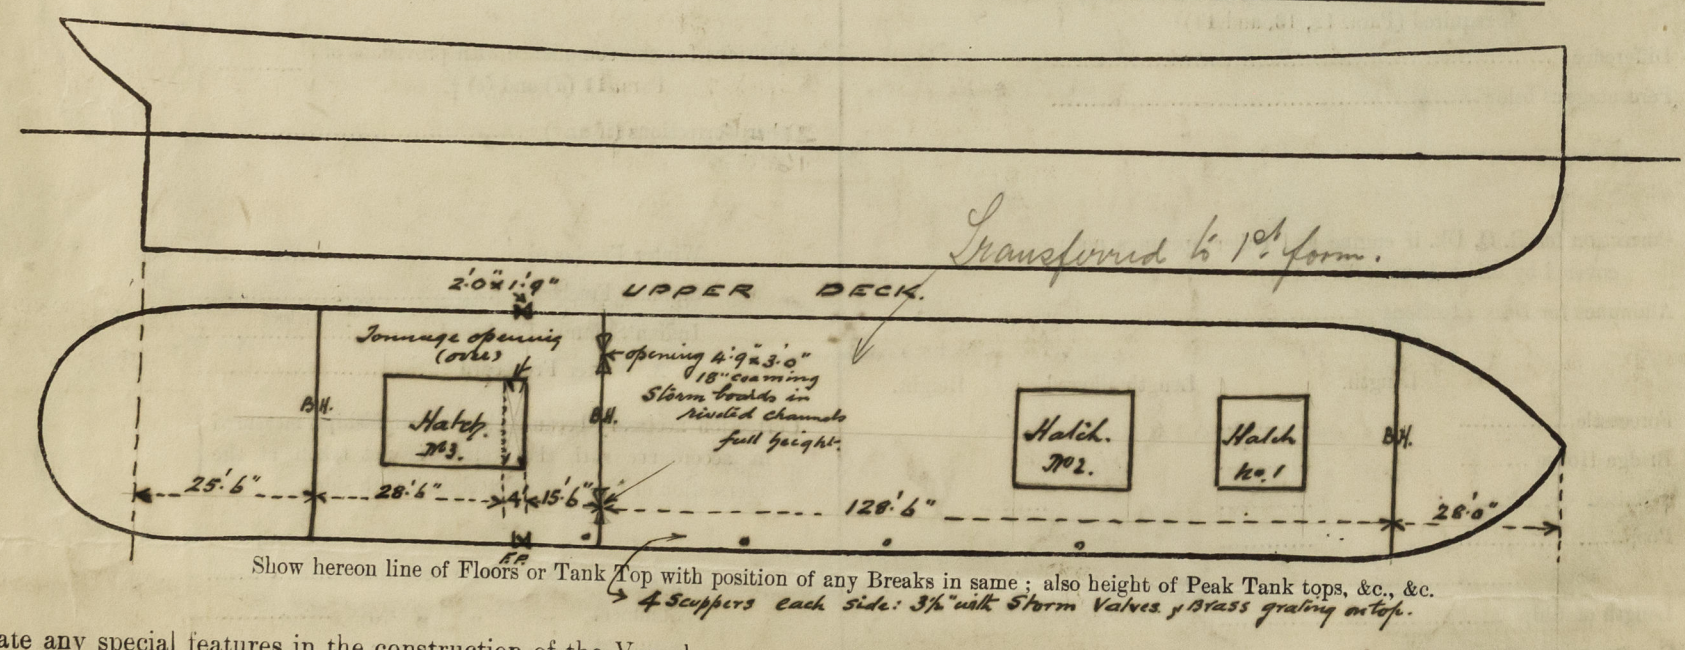 Transferred to 1st form.
2'.0" x 1'.9"
UPPER DECK.
Tonnage opening
(over)
opening 4'.9" x 3'.0"
18" coaming
Storm boards in
riveted channels
full height.
B.H.
B.H.
B.H.
Hatch.
No 3.
Hatch.
No 2.
Hatch
No. 1
25'.6"
28'.6"
4'
15'.6"
128'.6"
28'.0"
F.P.
Show hereon line of Floors or Tank Top with position of any Breaks in same ; also height of Peak Tank tops, &c., &c.
4 Scuppers each side: 3½" with Storm Valves & Brass grating on top.
ate any special features in the construction of the